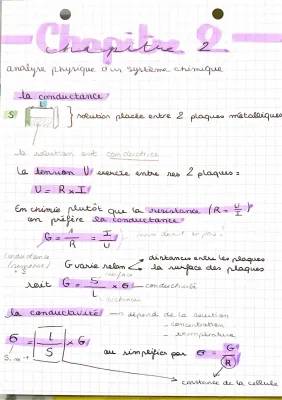 Chapitre 2
chapitre 2
analyse physique d'un système chimique
la conductance
S } solution placée entre 2 plaques métalliques
la solution est conductrice
La tension U exercée entre ses 2 plaques :
U = R × I
En chimie plutôt que la resistance (R = U/I)
on préfère la conductance
G = 1/R = I/U
conductance (siemens)
G varie selon → distances entre les plaques
→ la surface des plaques
soit G = S/L × σ → conductivité
surface
distance
la conductivité → dépend de la solution
- concentration
- température
σ = L/S × G ou simplifier par σ = G/R
S.m⁻¹
constante de la cellule